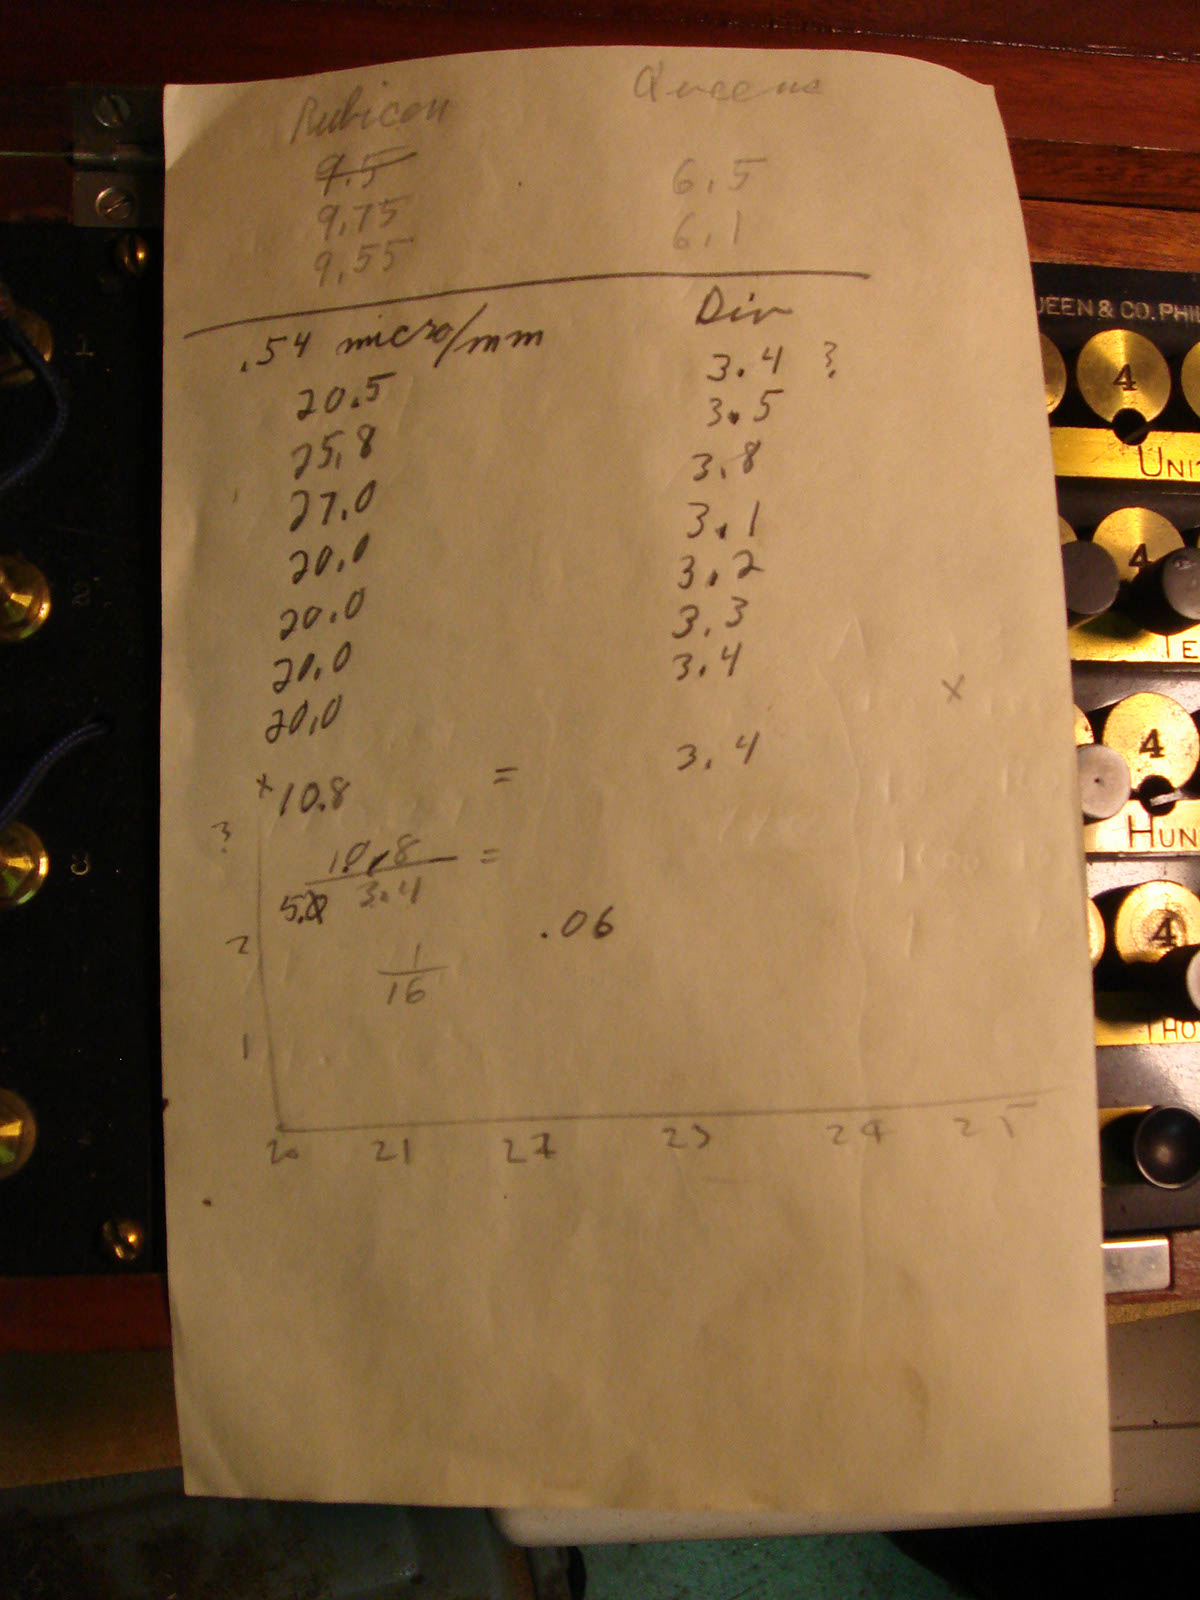 Rubicon Queens
9.5 6.5
9.75 6.1
9.55
.54 micro/mm Div
20.5 3.4 ?
25.8 3.5
27.0 3.8
20.0 3.1
20.0 3.2
20.0 3.3
20.0 3.4
x 10.8 = 3.4
10.8 =
5.0 3.4
.06
1
16
3
2
1
20 21 22 23 24 25
x
1
2
3
QUEEN & CO. PHIL
4
UNI
4
TE
4
HUN
4
THO